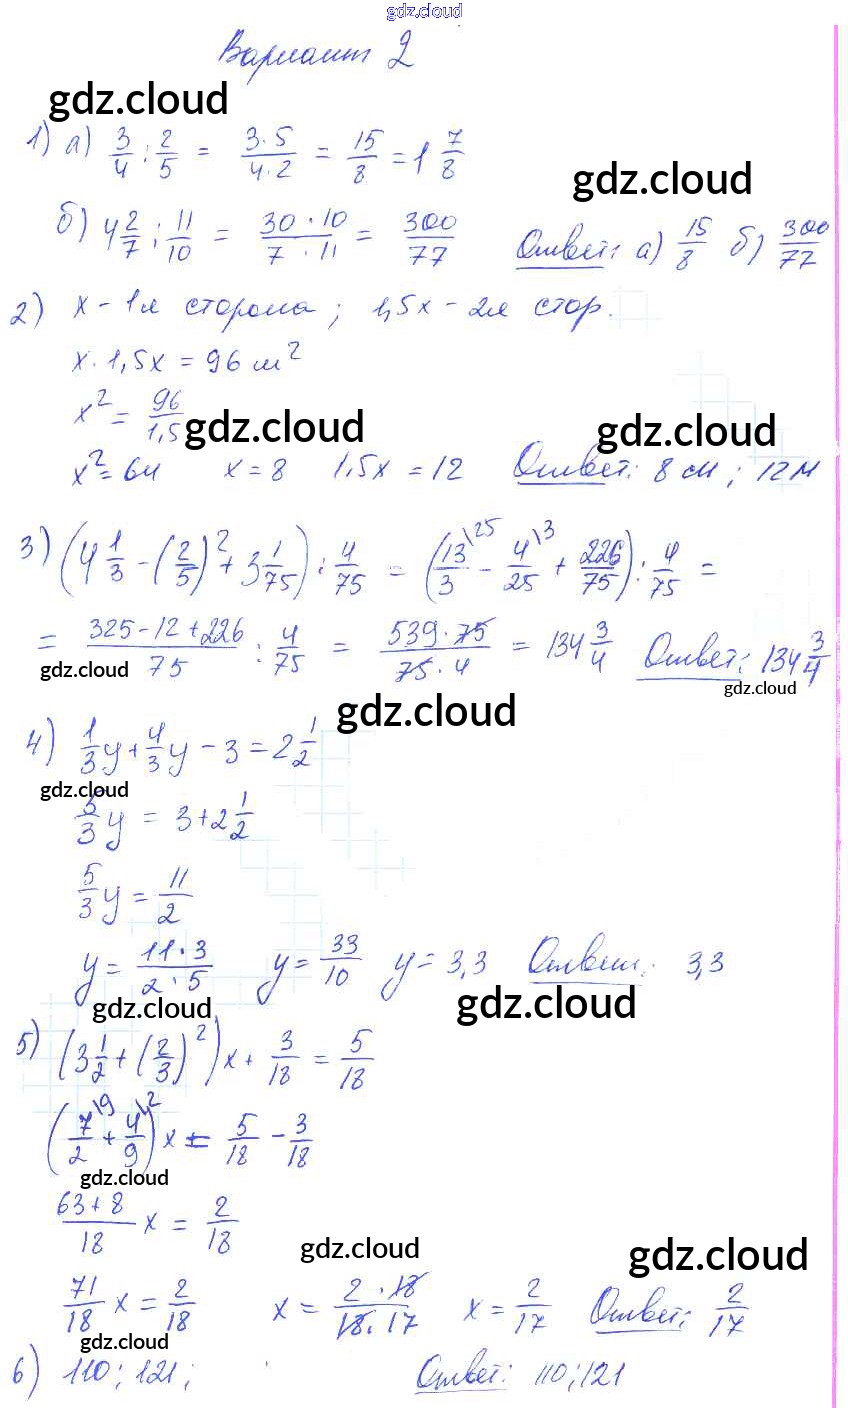 gdz.cloud
Вариант 2
gdz.cloud
1) а) 3/4 : 2/5 = 3·5/4·2 = 15/8 = 1 7/8
gdz.cloud
б) 4 2/7 : 11/10 = 30·10/7·11 = 300/77 Ответ: а) 15/8 б) 300/77
2) x - 1я сторона; 1,5x - 2я стор.
x·1,5x = 96 м²
x² = 96/1,5
gdz.cloud gdz.cloud
x² = 64 x = 8 1,5x = 12 Ответ: 8 см; 12 м
3) (4 1/3 - (2/5)² + 3 1/75) : 4/75 = (13/3 \25 - 4/25 \3 + 226/75) : 4/75 =
= 325-12+226/75 : 4/75 = 539·75/75·4 = 134 3/4 Ответ: 134 3/4
gdz.cloud gdz.cloud
gdz.cloud
4) 1/3 y + 4/3 y - 3 = 2 1/2
gdz.cloud
5/3 y = 3 + 2 1/2
5/3 y = 11/2
y = 11·3/2·5 y = 33/10 y = 3,3 Ответ: 3,3
gdz.cloud gdz.cloud
5) (3 1/2 + (2/3)²)x + 3/18 = 5/18
(7/2 \9 + 4/9 \2)x = 5/18 - 3/18
gdz.cloud
63+8/18 x = 2/18
gdz.cloud gdz.cloud
71/18 x = 2/18 x = 2·18/18·17 x = 2/17 Ответ: 2/17
gdz.cloud
6) 110; 121; Ответ: 110; 121